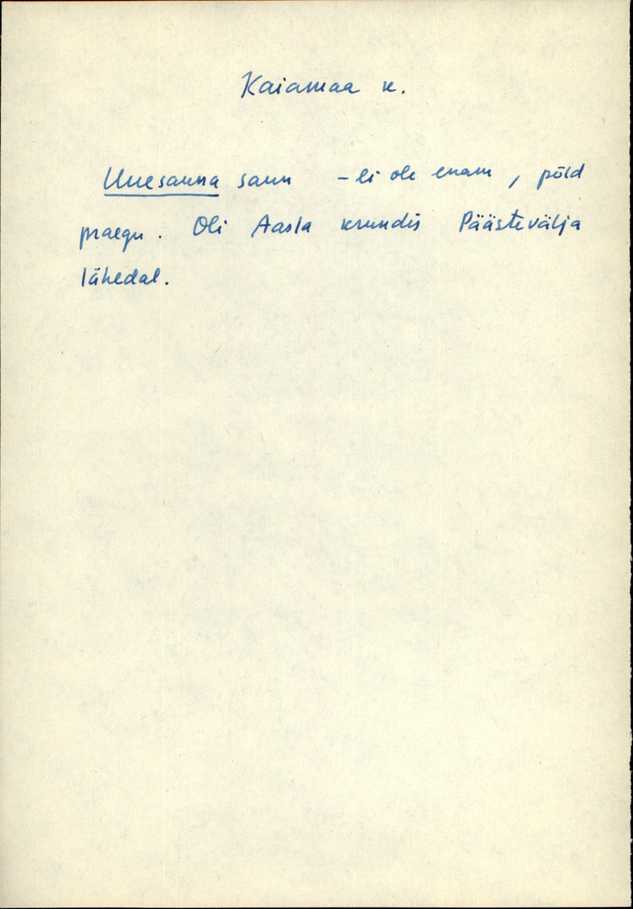 Kaiamaa k.
Uuesauna saun – ei ole enam, põld
praegu. Oli Aasla krundis Päästevälja
lähedal.